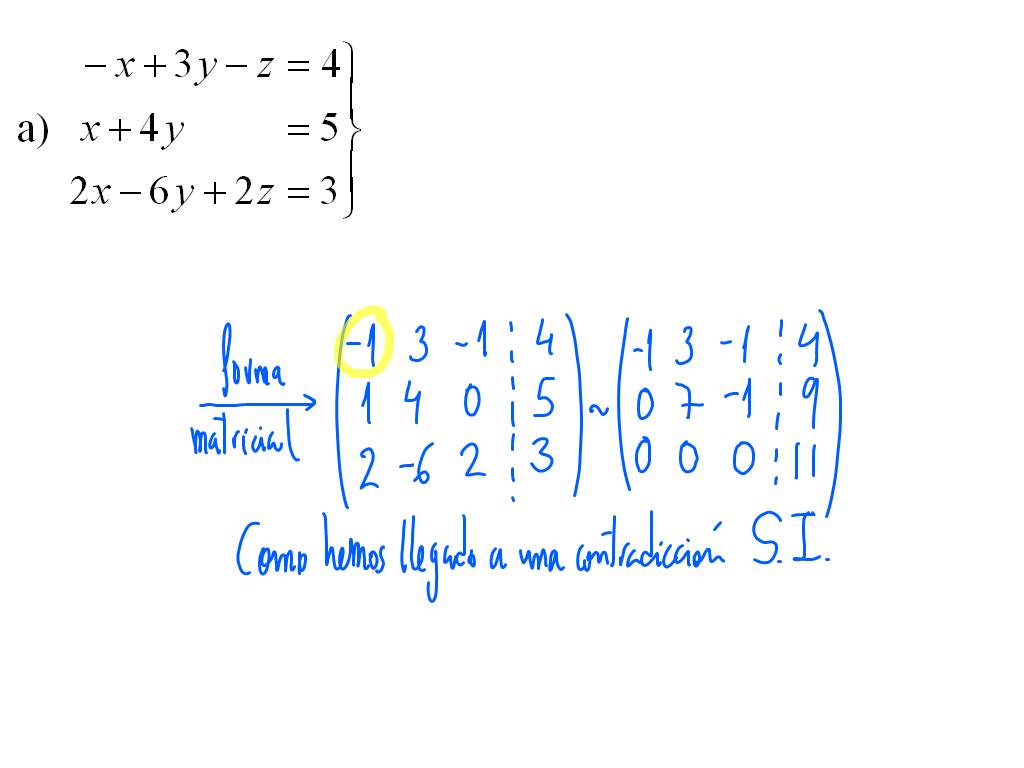 −x+3y−z=4
a) x+4y =5
2x−6y+2z=3
forma
matricial
-1 3 -1 4 ~ -1 3 -1 4
1 4 0 5 0 7 -1 9
2 -6 2 3 0 0 0 11
Como hemos llegado a una contradicción S.I.